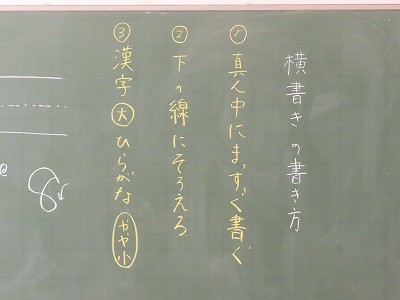 横書きの書き方
①真ん中にまっすぐ書く
②下の線にそろえる
③漢字大ひらがなやや小